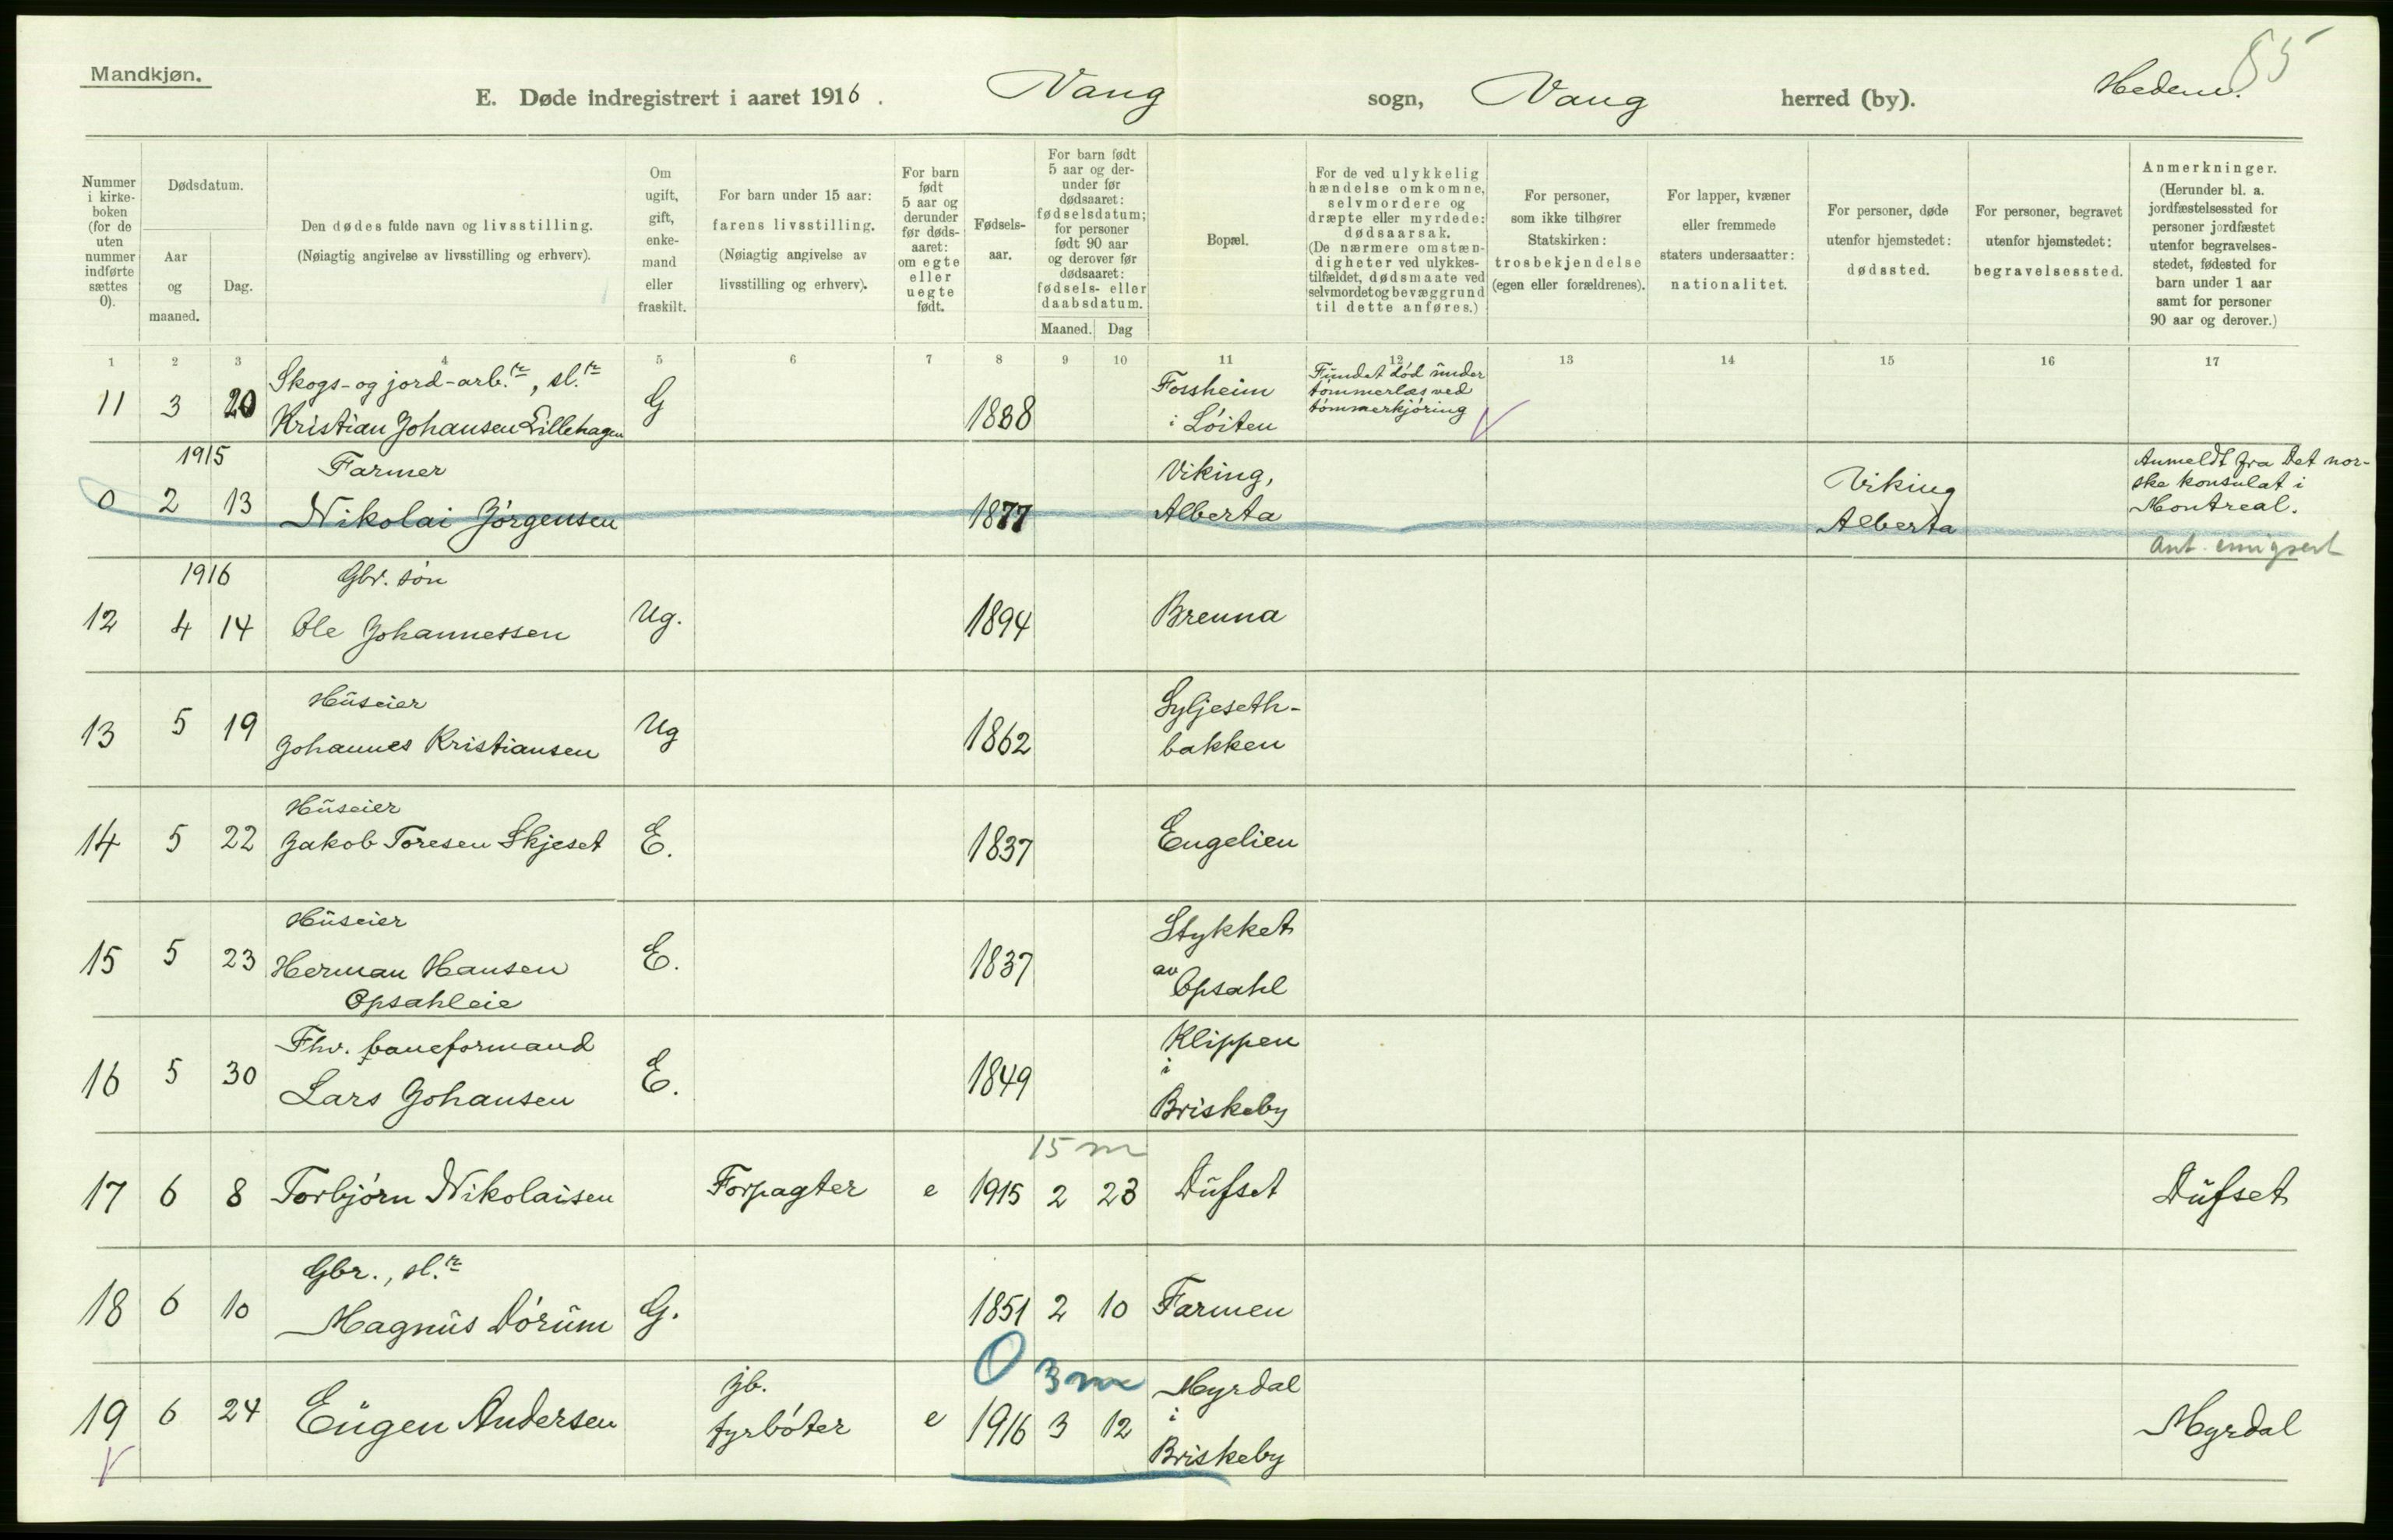 Mandkjøn.
85
E. Døde indregistrert i aaret 1916. Vang sogn, Vang herred (by). Hedem.
Nummer i kirke-boken (for de uten nummer indførte sættes 0).
Dødsdatum.
Aar og maaned.
Dag.
Den dødes fulde navn og livsstilling.
(Nøiagtig angivelse av livsstilling og erhverv).
Om ugift, gift, enke-mand eller fraskilt.
For barn under 15 aar: farens livsstilling.
(Nøiagtig angivelse av livsstilling og erhverv).
For barn født 5 aar og derunder før døds-aaret: om egte eller uegte født.
Fødsels-aar.
For barn født 5 aar og der-under før dødsaaret: fødselsdatum; for personer født 90 aar og derover før dødsaaret: fødsels- eller daabsdatum.
Maaned. Dag
Bopæl.
For de ved ulykkelig hændelse omkomne, selvmordere og dræpte eller myrdede: dødsaarsak. (De nærmere omstæn-digheter ved ulykkes-tilfældet, dødsmaate ved selvmordet og bevæggrund til dette anføres.)
For personer, som ikke tilhører Statskirken: trosbekjendelse (egen eller forældrenes).
For lapper, kvæner eller fremmede staters undersaatter: nationalitet.
For personer, døde utenfor hjemstedet: dødssted.
For personer, begravet utenfor hjemstedet: begravelsessted.
Anmerkninger. (Herunder bl. a. jordfæstelsessted for personer jordfæstet utenfor begravelses-stedet, fødested for barn under 1 aar samt for personer 90 aar og derover.)
1 2 3 4 5 6 7 8 9 10 11 12 13 14 15 16 17
Skogs- og jord-arb.r, sl.r
11 3 20 Kristian Johansen Lillehagen G 1888 Fossheim i Löiten Fundet död under tömmerlæs ved tömmerkjöring
1915 Farmer
0 2 13 Nikolai Jörgensen 1877 Viking, Alberta Viking Alberta Anmeldt fra Det nor-ske konsulat i Montreal.
Ant. emigrert
1916 Gbr. sön
12 4 14 Ole Johannessen Ug. 1894 Brenna
Huseier
13 5 19 Johannes Kristiansen Ug 1862 Syljeseth-bakken
Huseier
14 5 22 Jakob Toresen Skjeset E. 1837 Engelien
Huseier
15 5 23 Herman Hansen Opsahleie E. 1837 Stykket av Opsahl
Fhv. baneformand
16 5 30 Lars Johansen E. 1849 Klippen i Briskeby
15 m
17 6 8 Torbjörn Nikolaisen Forpagter e 1915 2 23 Dufset Dufset
Gbr., sl.r
18 6 10 Magnus Dörum G. 1851 2 10 Farmen
0 3 m
19 6 24 Eugen Andersen jb. fyrböter e 1916 3 12 Myrdal i Briskeby Myrdal